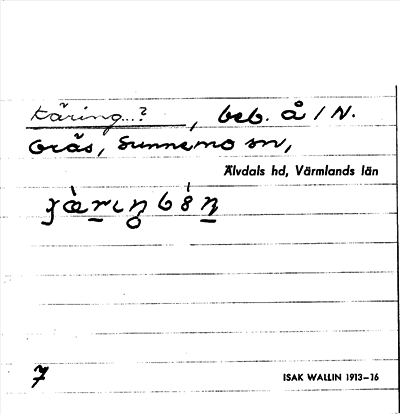 Käring...?, beb. å / N.
Gräs, Sunnemo sn,
Älvdals hd, Värmlands län
7
ISAK WALLIN 1913–16